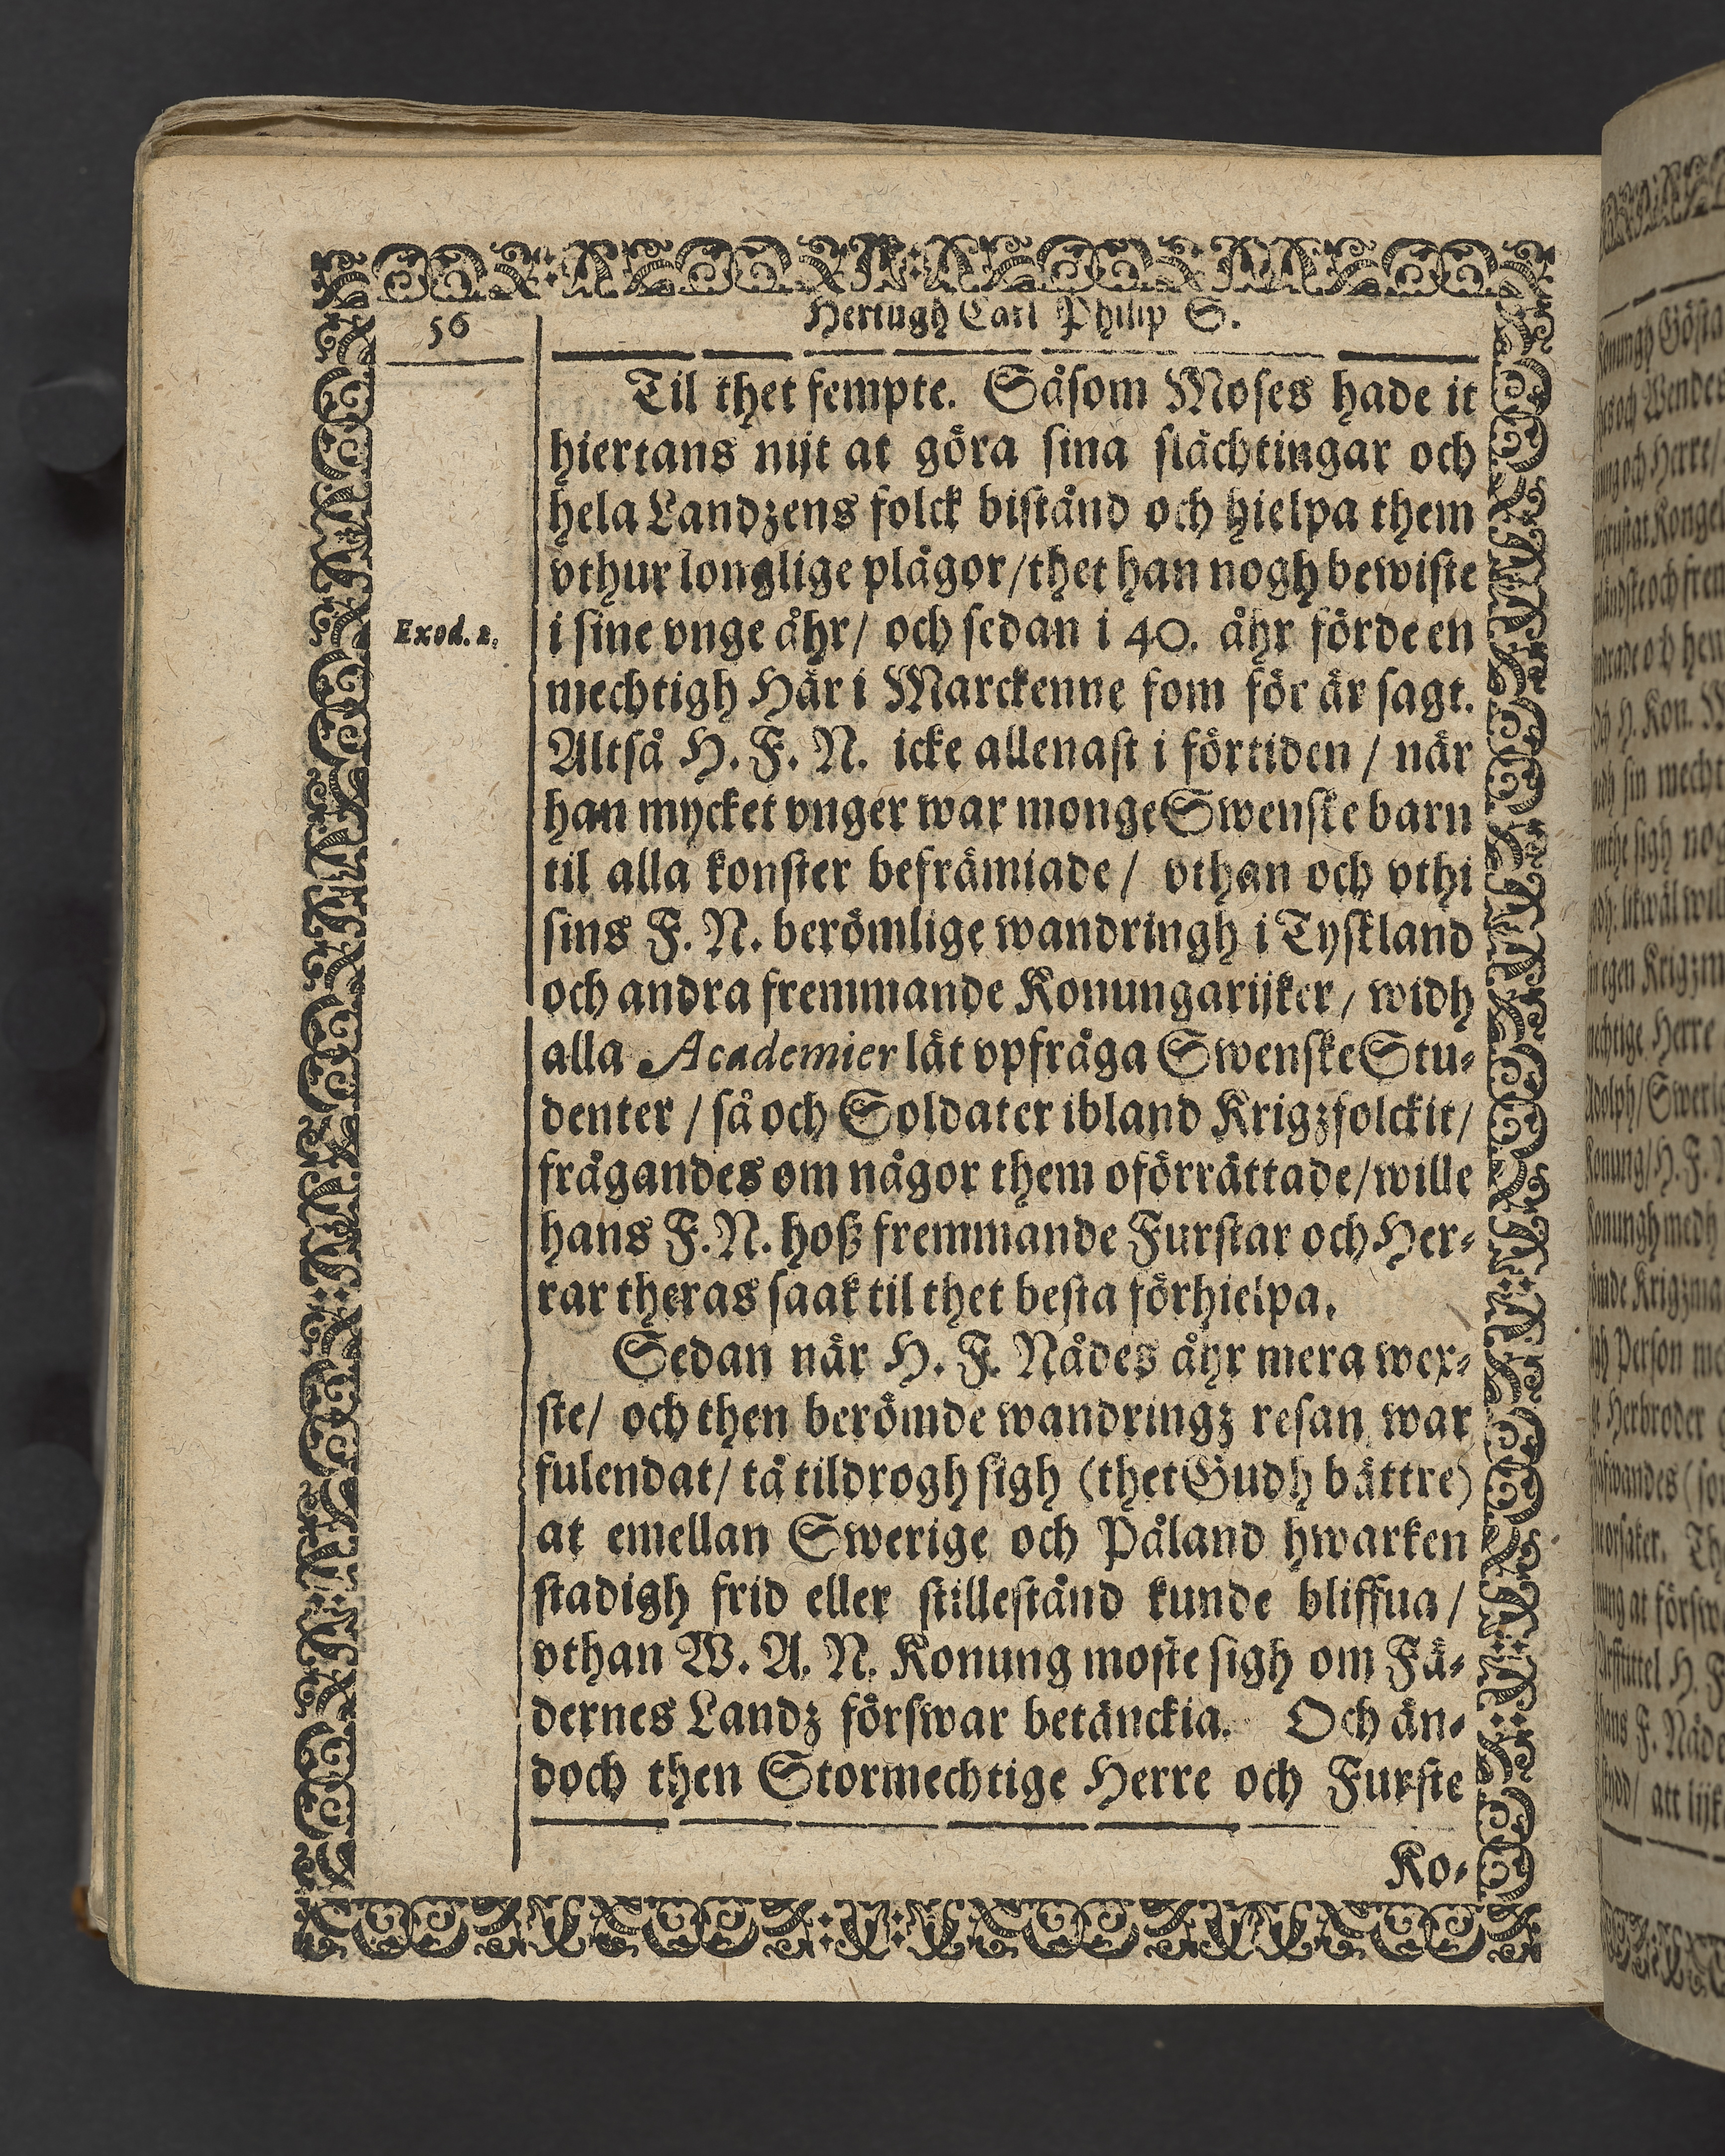 56
Hertugh Carl Philip S.
Til thet fempte. Såsom Moses hade it
hiertans nijt at göra sina slächtingar och
hela Landzens folck bistånd och hielpa them
vthur longlige plågor/thet han nogh bewiste
Exod. 2.
i sine vnge åhr/ och sedan i 40. åhr förde en
mechtigh Här i Marckenne som för är sagt.
Altså H. F. N. icke allenast i förtiden / när
han mycket vnger war monge Swenske barn
til alla konster befrämiade / vthan och vthi
sins F. N. berömlige wandringh i Tyskland
och andra fremmande Konungarijker/ widh
alla Academier lät vpfråga Swenske Stu-
denter / så och Soldater ibland Krigzfolckit/
frågandes om någor them oförrättade/wille
hans F. N. hoß fremmande Furstar och Her-
rar theras saak til thet besta förhielpa.
Sedan när H. F. Nådes åhr mera wex-
ste/ och then berömde wandringz resan war
fulendat/ tå tildrogh sigh (thet Gudh bättre)
at emellan Swerige och Påland hwarken
stadigh frid eller stillestånd kunde bliffua/
vthan W. A. N. Konung moste sigh om Fä-
dernes Landz förswar betänckia. Och än-
doch then Stormechtige Herre och Furste
Ko-